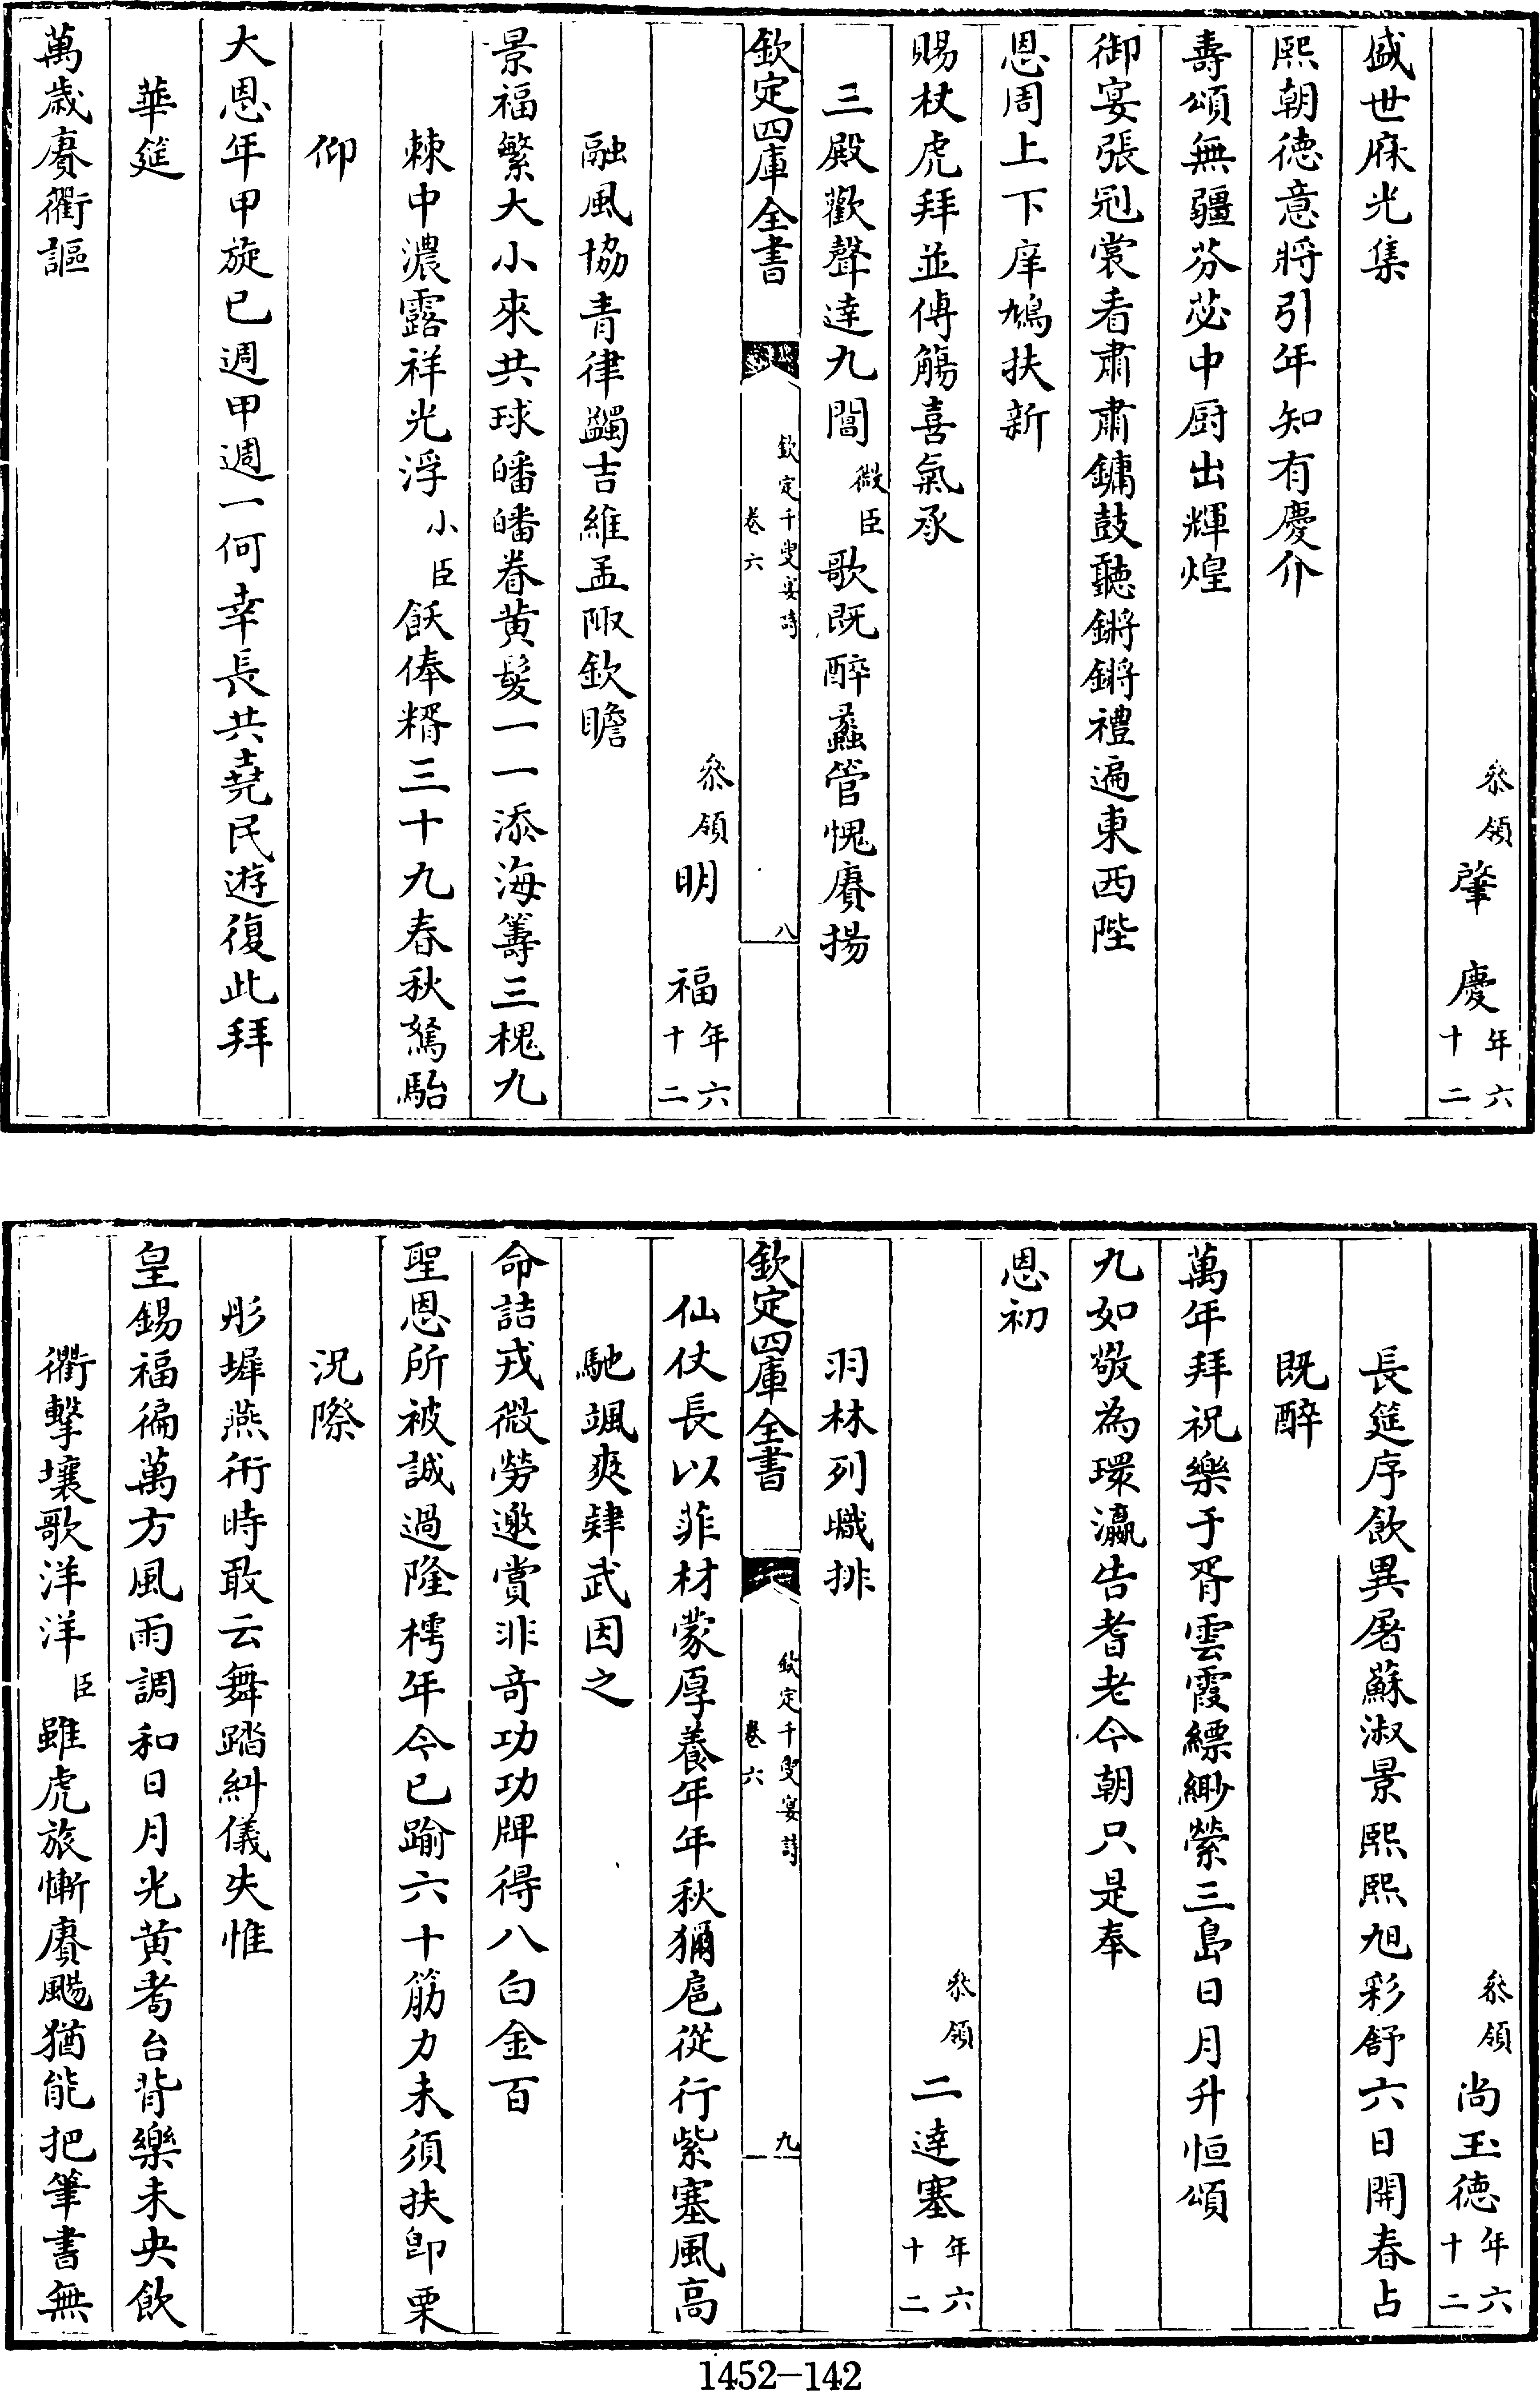 參領肇慶年六十二
盛世庥光集
熙朝德意將引年知有慶介
壽頌無疆芬苾中厨出輝煌
御宴張冠裳看肅肅鏞鼓聽鏘鏘禮遍東西陛
恩周上下庠鳩扶新
賜杖虎拜並傳觴喜氣承
三殿歡聲達九閽微臣歌既醉蠡管愧賡揚
欽定四庫全書
欽定千叟宴詩
卷六
八
參領明福年六十二
融風協青律蠲吉維孟陬欽瞻
景福繁大小來共球皤皤眷黄髮一一添海籌三槐九
棘中濃露祥光浮小臣飫俸糈三十九春秋駑駘
仰
大恩年甲旋已週甲週一何幸長共堯民遊復此拜
華筵
萬歲賡衢謳
參領尚玉德年六十二
長筵序飲異屠蘇淑景熙熙旭彩舒六日開春占
既醉
萬年拜祝樂于胥雲霞縹緲縈三島日月升恒頌
九如敬為環瀛告耆老今朝只是奉
恩初
參領二達塞年六十二
羽林列職排
欽定四庫全書
欽定千叟宴詩
卷六
九
仙仗長以菲材蒙厚養年年秋獮扈從行紫塞風高
馳颯爽肄武因之
命詰戎微勞邀賞非奇功功牌得八白金百
聖恩所被誠過隆樗年今已踰六十筋力未須扶卽栗
況際
彤墀燕衎時敢云舞踏糾儀失惟
皇錫福徧萬方風雨調和日月光黄耇台背樂未央飲
衢擊壤歌洋洋臣雖虎旅慚賡颺猶能把筆書無
1452-142